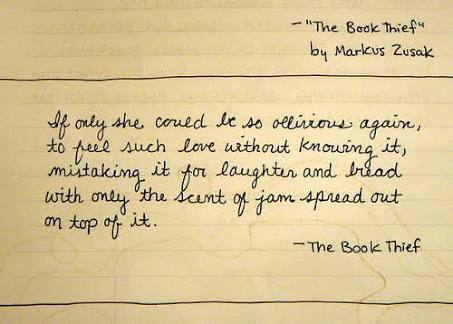 —"The Book Thief"
by Markus Zusak
If only she could be so oblivious again,
to feel such love without knowing it,
mistaking it for laughter and bread
with only the scent of jam spread out
on top of it.
—The Book Thief